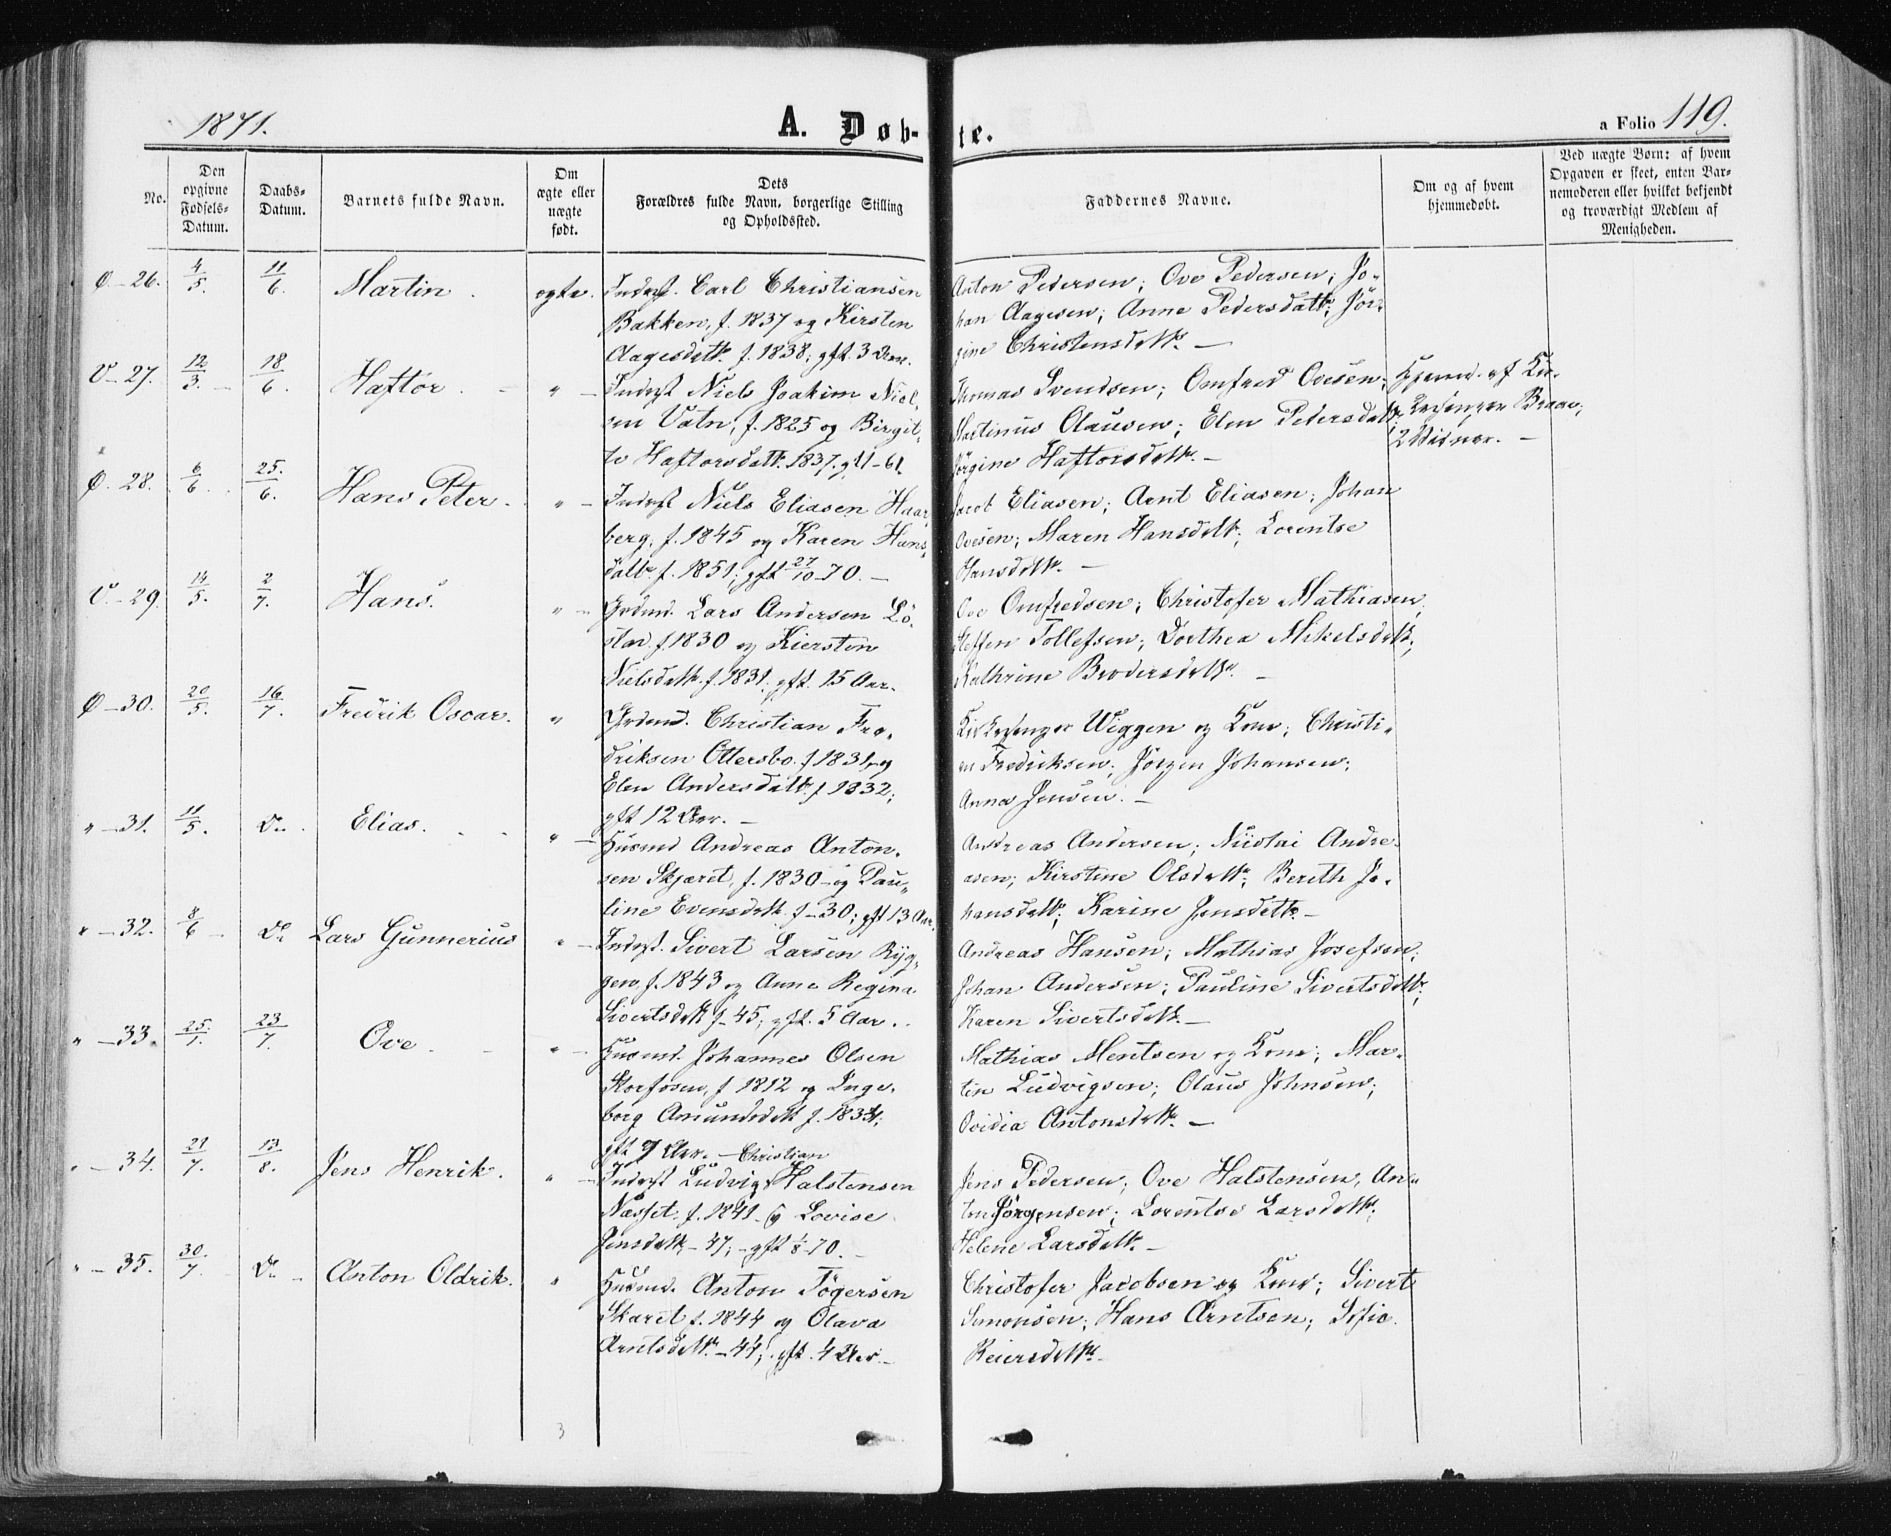 1871.
A. Døb-
te.
a Folio 119.
No.
Den
opgivne
Fødsels-
Datum.
Daabs-
Datum.
Barnets fulde Navn.
Om
ægte eller
uægte
født.
Dets
Forældres fulde Navn, borgerlige Stilling
og Opholdssted.
Faddernes Navne.
Om og af hvem
hjemmedøbt.
Ved uægte Børn: af hvem
Opgaven er skeet, enten Bar-
nemoderen eller hvilket bekjendt
og troværdigt Medlem af
Menigheden.
Ø-26. 4/5. 11/6. Martin. ægte. Inderst. Carl Christiansen
Bakken, f. 1837 og Kirsten
Aagesdatt. f. 1838; gft. 3 Aar.
Anton Pedersen; Ove Pedersen; Jo-
han Aagesen; Anne Pedersdatt; Jör-
gine Christensdatt. —
V-27. 12/3. 18/6. Haftor. " Inderst Niels Joakim Niel-
sen Vatn, f. 1825 og Birgit-
te Haftorsdatt. 1837. g. 11-61.
Thomas Svendsen; Omfred Ovesen;
Martinus Olausen; Elen Pedersdatt;
Jörgine Haftorsdatt. —
Hjemd. af Kir-
kesanger Braae;
2 Vidner. —
Ø. 28. 6/6. 25/6. Hans Peter. " Inderst Niels Eliasen Haar-
berg, f. 1845 og Karen Hans-
datt. f. 1851; gft 27/10-70. —
Jacob Eliasen; Arnt Eliasen; Johan
Ovesen; Maren Hansdatt; Lorentse
Hansdatt. —
V.-29. 14/5. 2/7. Hans. " Grdmd. Lars Andersen Lö-
, f. 1830 og Kiersten
Nielsdatt. f. 1831; gft. 15 Aar.
Ove Omfredsen; Christofer Mathiasen;
Steffen Tollefsen; Dorthea Mikelsdatt;
Kathrine Brodersdatt. —
Ø-30. 20/5. 16/7. Fredrik Oscar. " Grdmd. Christian Fre-
driksen Ottersbo. f. 1831, og
Elen Andersdatt. f. 1832;
gft 12 Aar. —
Kirkesanger Wiggen og Kone; Christi-
an Fredriksen; Jörgen Johansen;
Anna Jensen. —
" -31. 11/5. Do. Elias. " Husmd Andreas Anton-
sen Skjæret, f. 1830 og Pau-
line Evensdatt. f-30; gft 13 Aar.
Andreas Andersen; Nicolai Andre-
asen; Kirstine Olsdatt; Bereth Jo-
hansdatt; Karine Jensdatt. —
" -32. 8/6. Do Lars Gunnerius " Inderst. Sivert Larsen Ryg-
gen, f. 1843 og Anne Regina
Sivertsdatt f-45; gft. 5 Aar.
Andreas Hansen; Mathias Josefsen;
Johan Andersen; Pauline Sivertsdatt;
Karen Sivertsdatt. —
" -33. 25/. 23/7. Ove. " Husmd. Johannes Olsen
Storfosen, f. 1812 og Inge-
borg Amundsdatt f. 1834;
gft 9 Aar. —
Mathias Mentsen og Kone; Mar-
tin Ludvigsen; Olaus Johnsen;
Ovidia Antonsdatt. —
" -34. 21/7. 13/8. Jens Henrik. " Christian
Inderst Ludvig Halstensen
Næsset. f. 1841. og Lovise
Jensdatt - 47; gft 1/8-70. —
Jens Pedersen; Ove Halstensen; An-
ton Jörgensen; Lorentse Larsdatt;
Helene Larsdatt. —
" -35. 30/7. Do. Anton Oldrik. " Husmd. Anton Tögersen
Skaret f. 1844 og Olava
Arntsdatt. -44; gft. 4 Aar. —
Christofer Jacobsen og Kone; Sivert
Simonsen; Hans Arntsen; Sofie
Reiersdatt. —
3